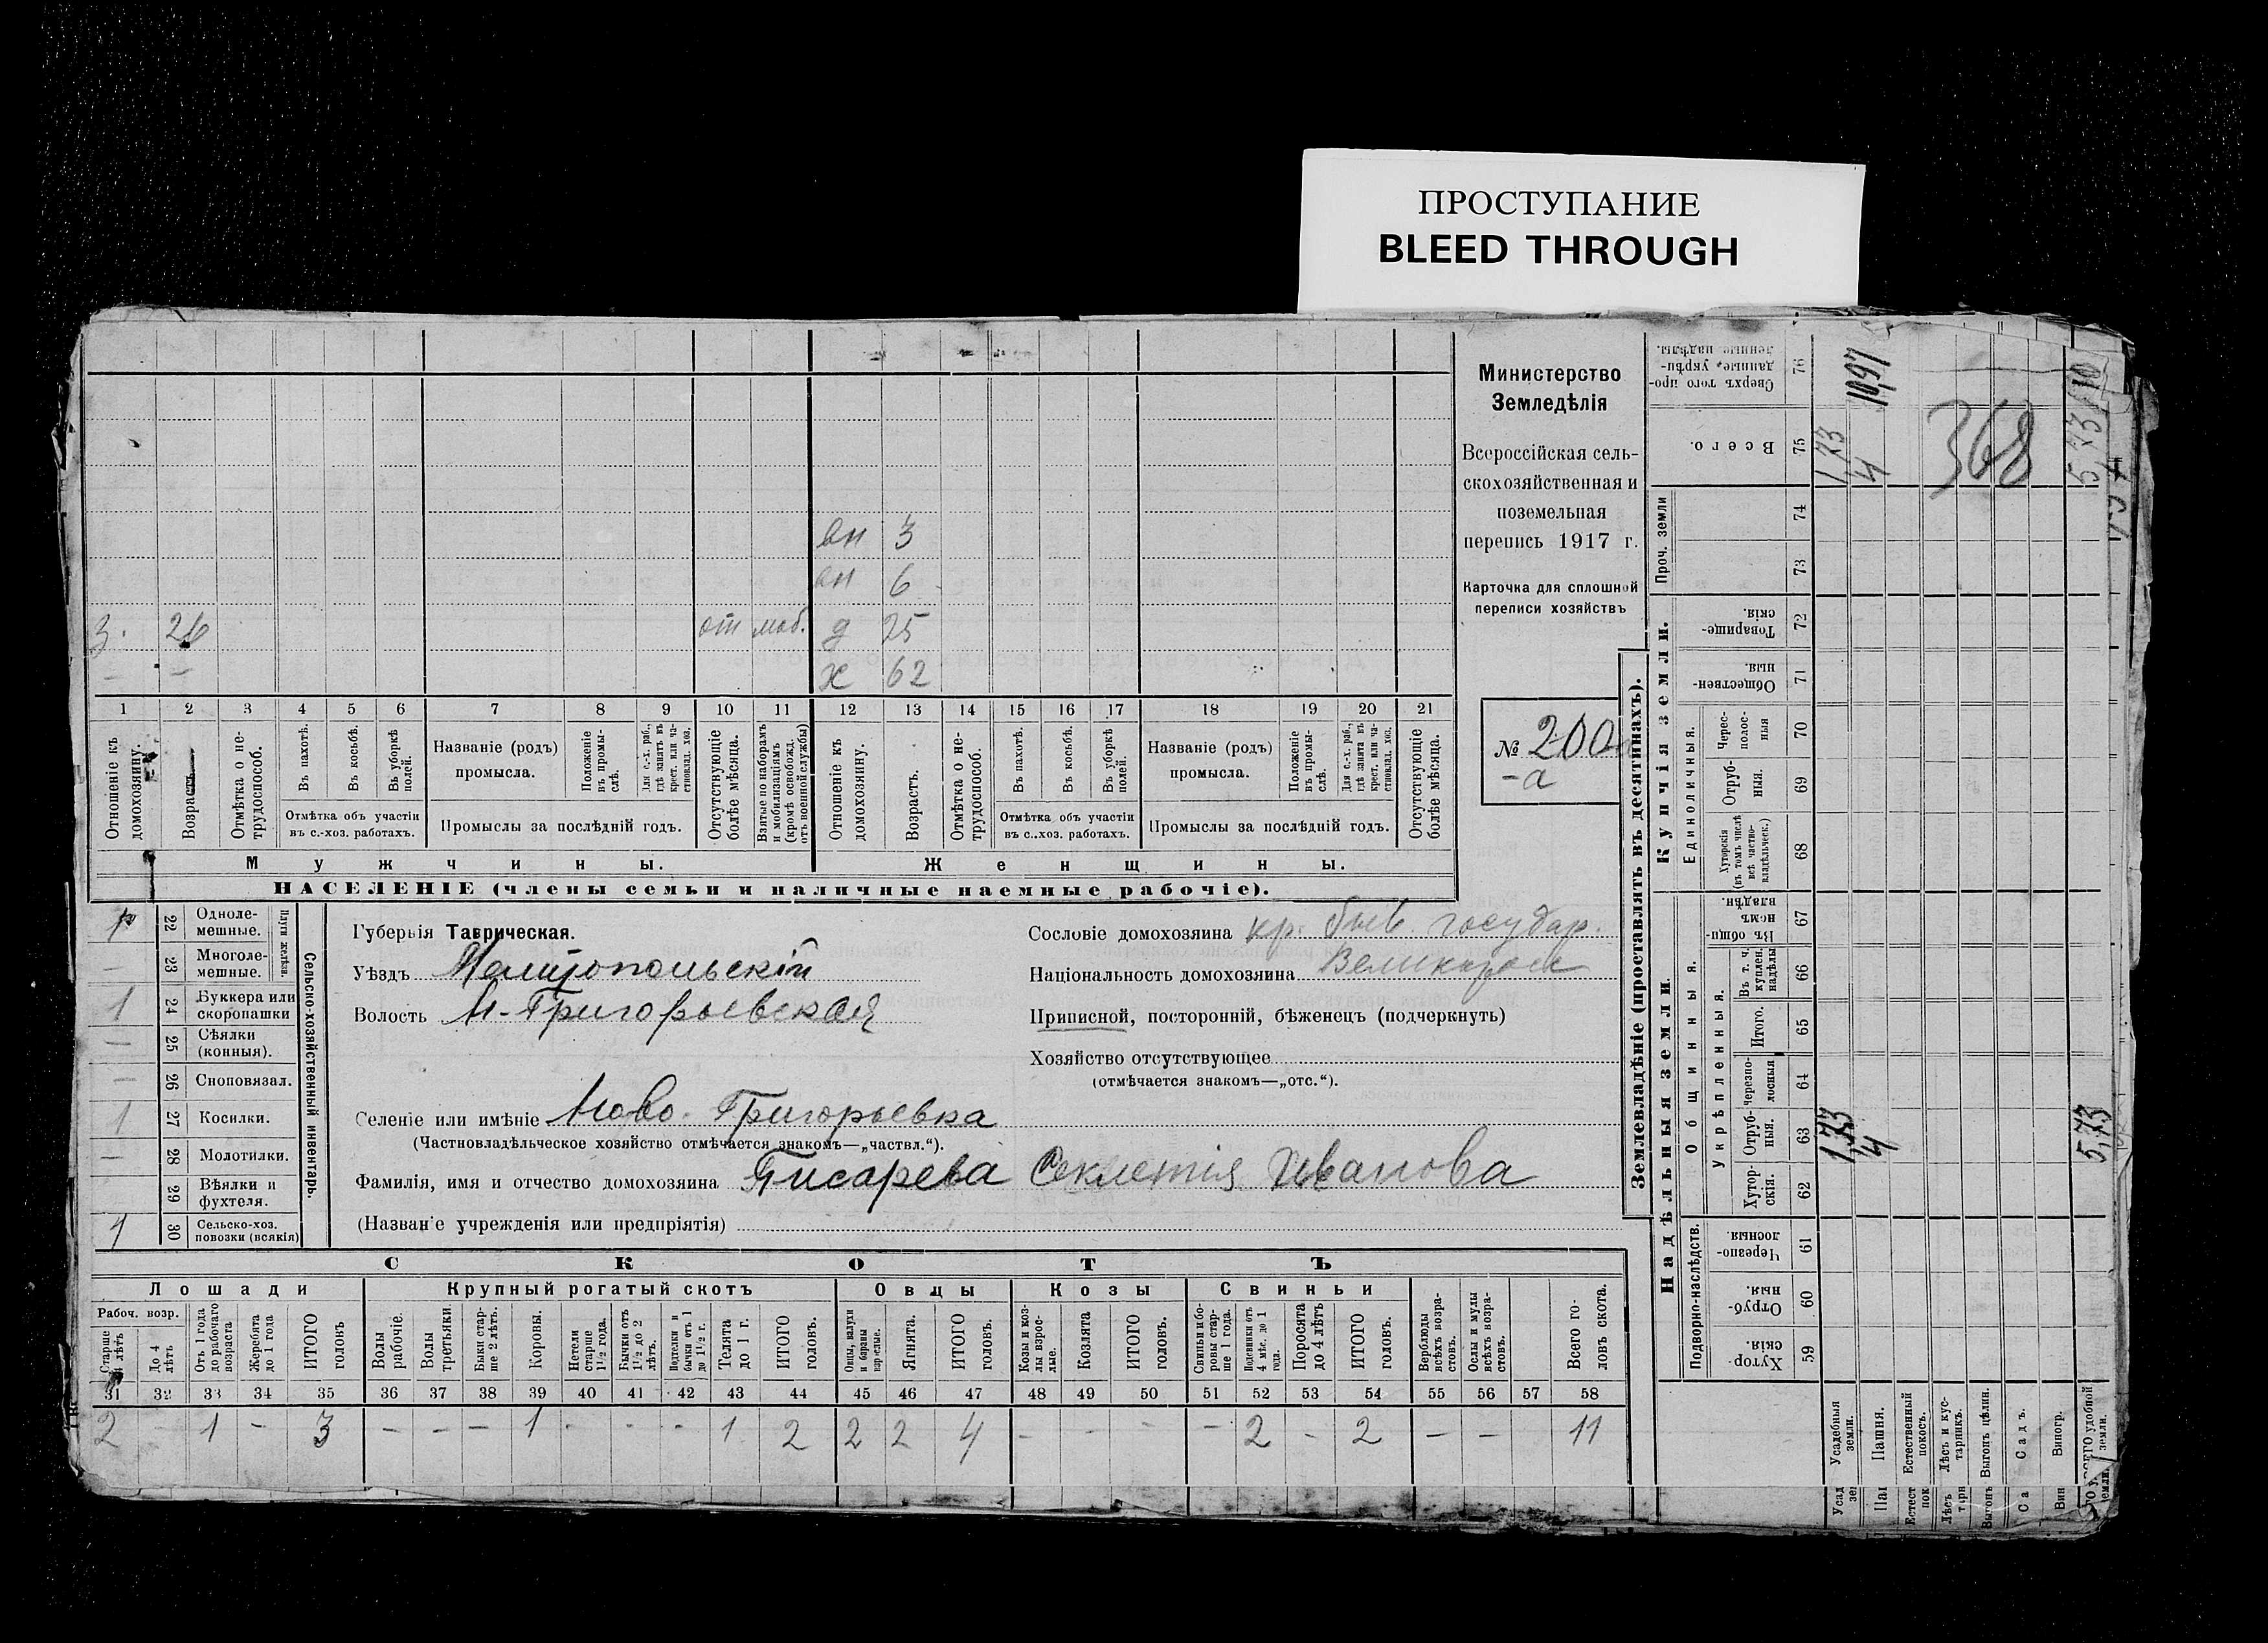 ПРОСТУПАНИЕ
BLEED THROUGH
Министерство
Земледѣлія
Всероссійская сель-
скохозяйственная и
поземельная
перепись 1917 г.
Карточка для сплошной
переписи хозяйствъ
№ 200
-а
вн 3
вн 6
з. 26 от моб. д 25
- - х 62
1 2 3 4 5 6 7 8 9 10 11 12 13 14 15 16 17 18 19 20 21
Отношеніе къ домохозяину.
Возрастъ.
Отмѣтка о не-трудоспособ.
Въ пахотѣ.
Въ косьбѣ.
Въ уборкѣ полей.
Отмѣтка объ участіи въ с.-хоз. работахъ.
Названіе (родъ) промысла.
Положеніе въ промы-слѣ.
Для с.-х. раб., гдѣ занятъ въ крест. или ча-стновлад. хоз.
Промыслы за послѣдній годъ.
Отсутствующіе болѣе мѣсяца.
Взятые по наборамъ и мобилизаціямъ (кромѣ освобожд. отъ военной службы)
Отношеніе къ домохозяину.
Возрастъ.
Отмѣтка о не-трудоспособ.
Въ пахотѣ.
Въ косьбѣ.
Въ уборкѣ полей.
Отмѣтка объ участіи въ с..хоз. работахъ.
Названіе (родъ) промысла.
Положеніе въ промы-слѣ.
Для с.-х. раб., гдѣ занята въ крест. или ча-стновлад. хоз.
Промыслы за послѣдній годъ.
Отсутствующіе болѣе мѣсяца.
Мужчины. Женщины.
НАСЕЛЕНІЕ (члены семьи и наличные наемные рабочіе).
Сельско-хозяйственный инвентарь.
Плуги желѣзн.
22 Одноле-мешные.
— 23 Многоле-мешные.
1 24 Буккера или скоропашки
— 25 Сѣялки (конныя).
— 26 Сноповязал.
1 27 Косилки.
— 28 Молотилки.
— 29 Вѣялки и фухтеля.
1 30 Сельско-хоз. повозки (всякія)
Губернія Таврическая.
Уѣздъ Мелитопольскій
Волость Н-Григорьевская
Селеніе или имѣніе Ново-Григорьевка
(Частновладѣльческое хозяйство отмѣчается знакомъ—„частвл.“).
Фамилія, имя и отчество домохозяина Писарева Секлетія Иванова
(Названіе учрежденія или предпріятія)
Сословіе домохозяина кр. быв. государ.
Національность домохозяина Великоросс
Приписной, посторонній, бѣженецъ (подчеркнуть)
Хозяйство отсутствующее
(отмѣчается знакомъ—„отс.“).
СКОТЪ
Лошади Крупный рогатый скотъ Овцы Козы Свиньи
Рабоч. возр.
Старше 4 лѣтъ
До 4 лѣтъ
Отъ 1 года до рабочаго возраста
Жеребята до 1 года
ИТОГО головъ
Волы рабочіе.
Волы третьяки.
Быки стар-ше 2 лѣтъ.
Коровы.
Нетели старше 1½ года.
Бычки отъ 1½ до 2 лѣтъ.
Подтелки и бычки отъ 1 до 1½ г.
Телята до 1 г.
ИТОГО головъ.
Овцы, валухи и бараны взрослые.
Ягнята.
ИТОГО головъ.
Козы и коз-лы взрос-лые.
Козлята
ИТОГО головъ.
Свиньи и бо-ровы стар-ше 1 года.
Подсвинки отъ 4 мѣс. до 1 года.
Поросята до 4 лѣтъ
ИТОГО головъ.
Верблюды всѣхъ возра-стовъ.
Ослы и мулы всѣхъ возра-стовъ.
Всего го-ловъ скота.
31 32 33 34 35 36 37 38 39 40 41 42 43 44 45 46 47 48 49 50 51 52 53 54 55 56 57 58
2 - 1 - 3 - - - 1 - - - 1 2 2 2 4 - - - - 2 - 2 - - 11
Землевладѣніе (проставлять въ десятинахъ).
Купчія земли.
Надѣльныя земли.
Проч. земли
Единоличныя.
Общинныя.
Укрѣпленныя.
Подворно-наслѣдств.
Сверхъ того про-данные, укрѣп-ленные надѣлы. 76
Всего. 75
74
73
Товарище-скія. 72
Обществен-ныя. 71
Черес-полос-ныя 70
Отруб-ныя. 69
Хуторскія (въ томъ числѣ всѣ частно-владѣльческ.) 68
Въ общи-номъ владѣн. 67
Въ т. ч. куплен. надѣлы 66
Итого. 65
Черезпо-лосныя 64
Отруб-ныя. 63
Хутор-скія. 62
Черезпо-лосныя 61
Отруб-ныя. 60
Хутор-скія. 59
Усадебныя земли.
Пашня.
Естественный покосъ.
Лѣсъ и кус-тарникъ.
Выгонъ цѣлин.
Садъ.
Виногр.
ВСЕГО удобной земли.
1,33
4
10,97
368
1,33
4